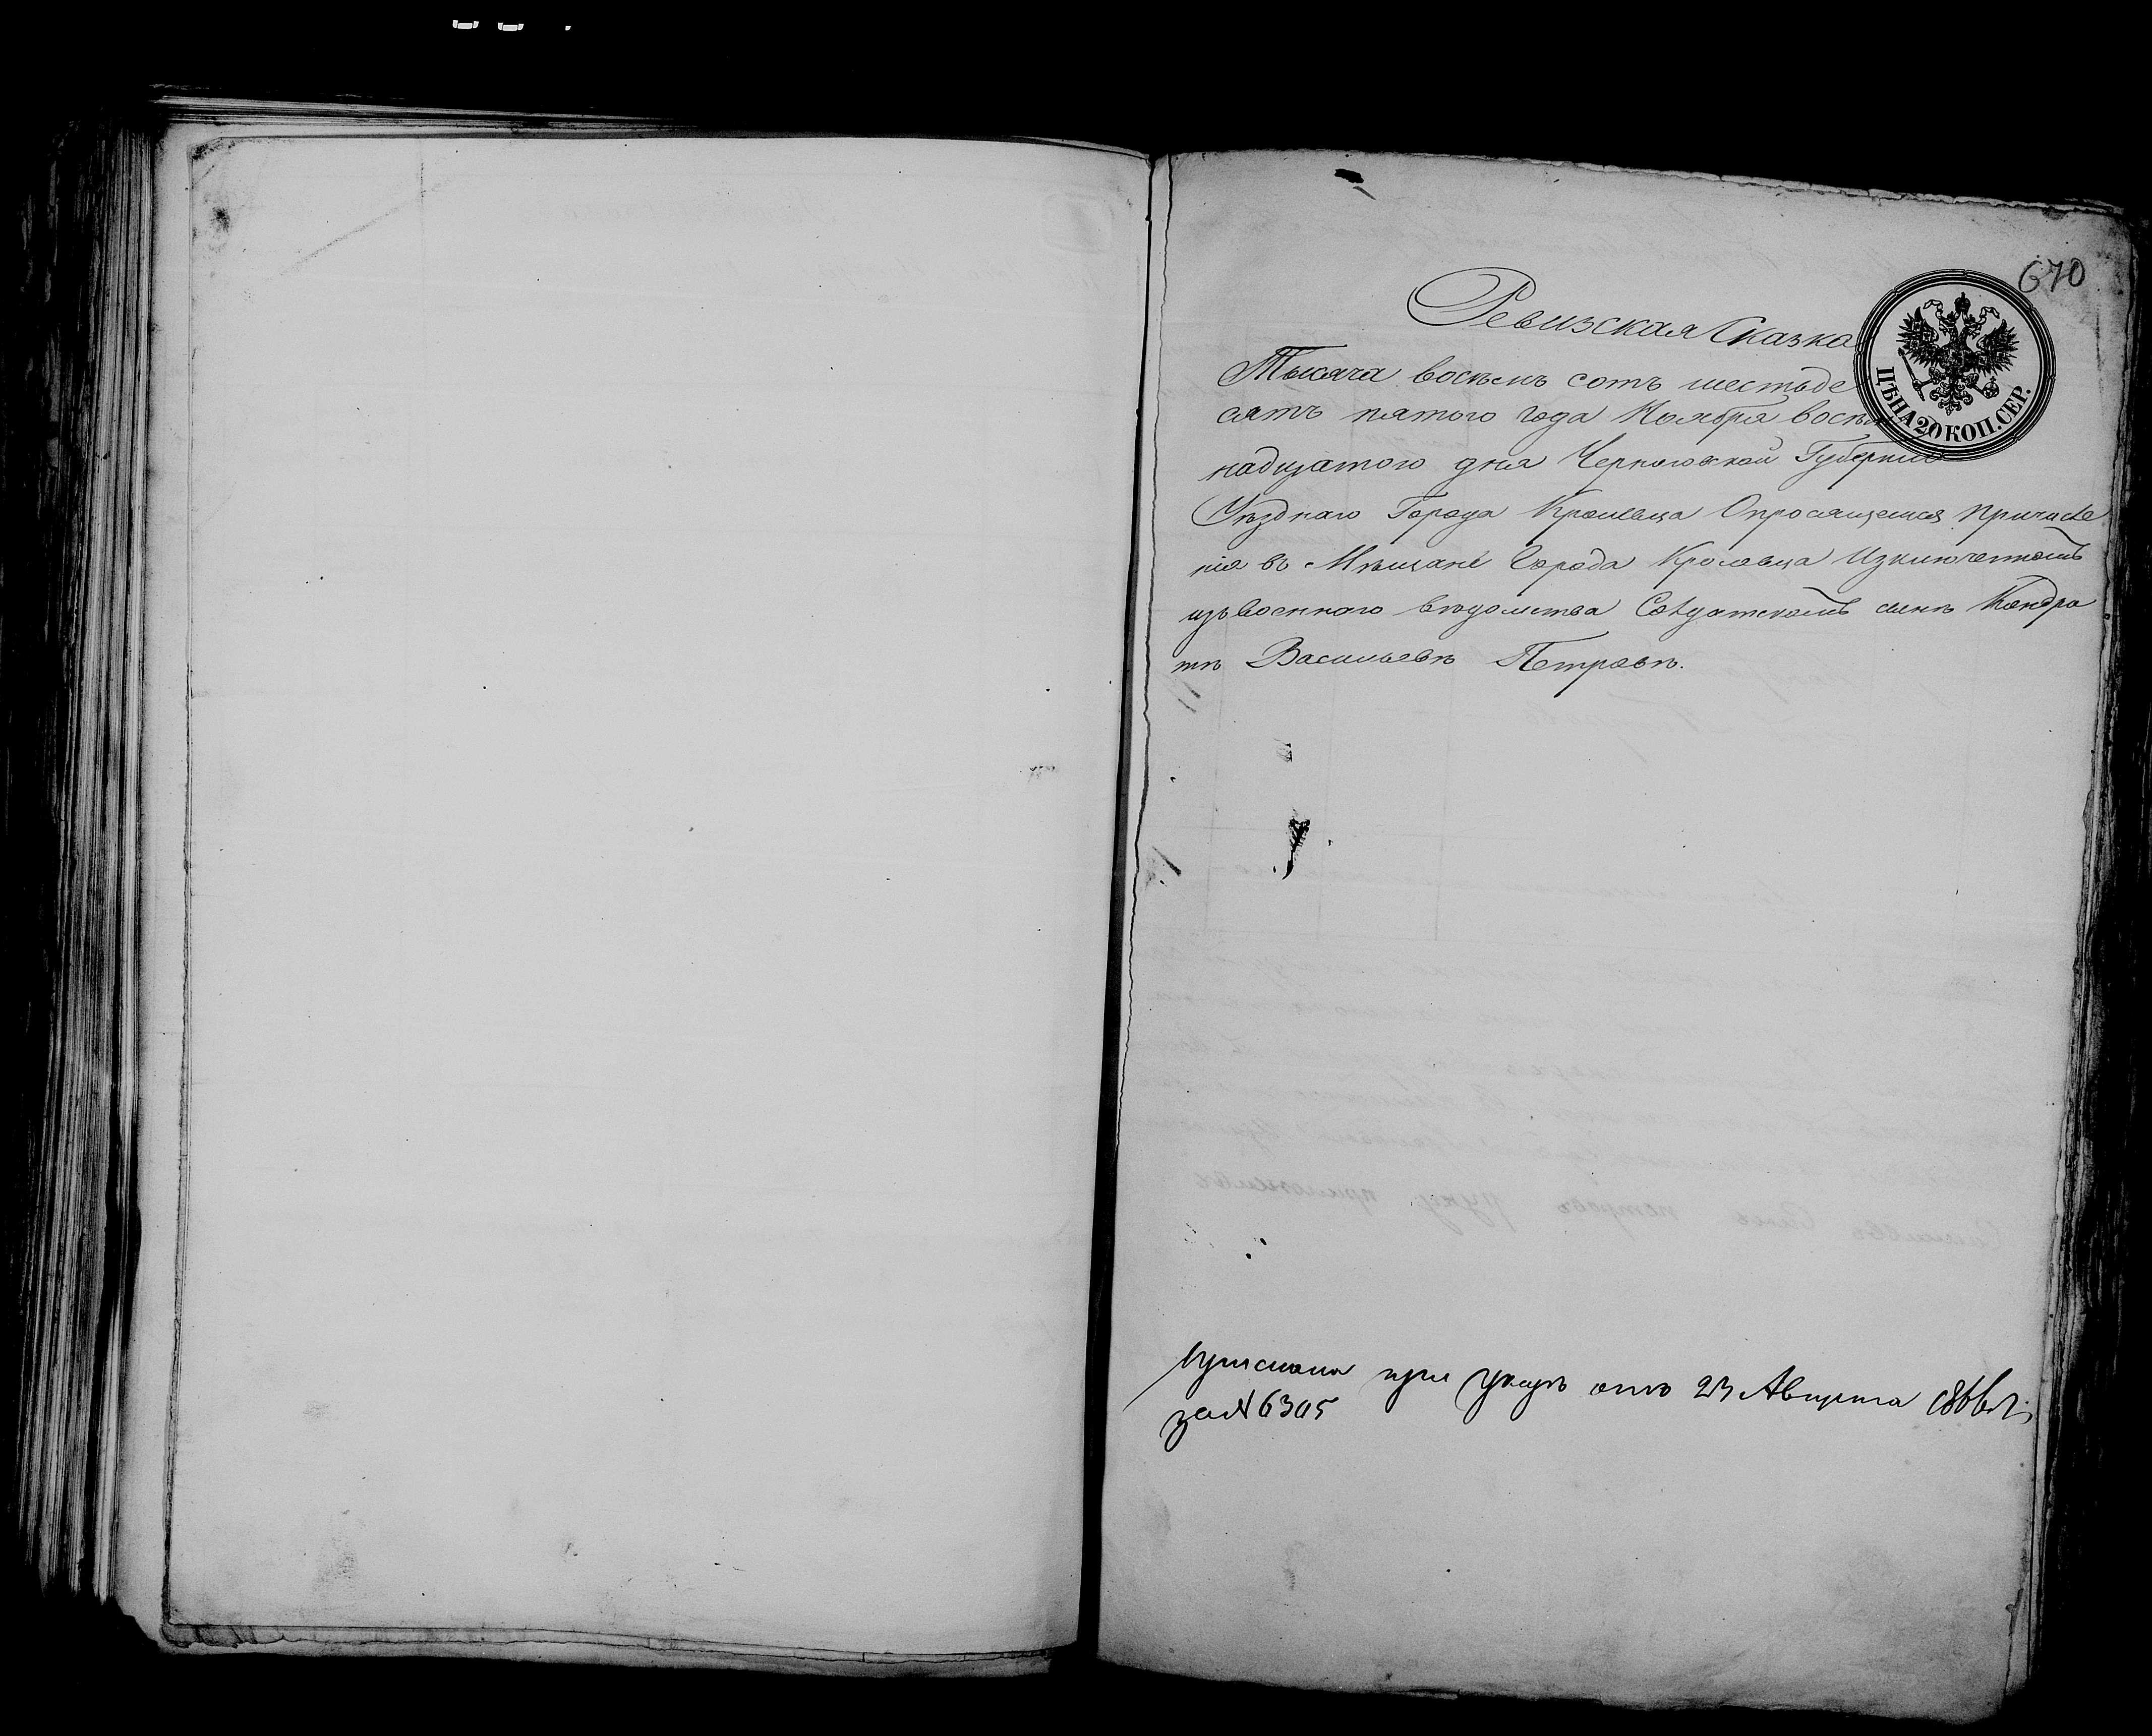 670
Ревизская Сказка
ЦѢНА 20 КОП. СЕР.
Тысяча восемь сотъ шестьде
сятъ пятого года Ноября восем
надцатого дня Черниговской Губернии
Уѣзднаго Города Кролевца Опросящемся причисле
нія въ Мѣщане Города Кролевца Изключенномъ
изъ военнаго вѣдомства Солдатскомъ сынѣ Кондра
тѣ Васильевѣ Петровѣ.
при указѣ отъ 23 Августа
за № 6305